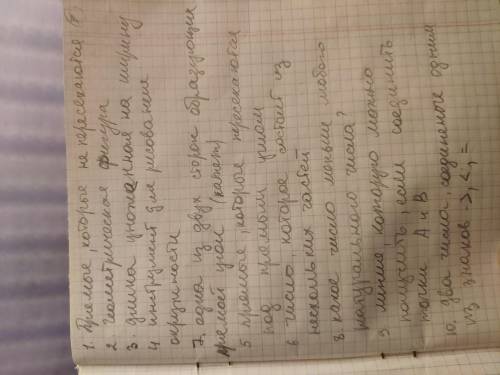 1. Прямые которые не пересекаются
2 Геометрическая фигура
3 длина умноженная на ширину
4 инструмент для рисования
окружности
7. одна из двух сторон образующих
прямой угол (катет)
5 прямые, которые пересекаются
под прямым углом
6 число которое состоит из
нескольких частей
8. какое число меньше любого
натурального числа?
9 линия, которую можно
получить, если соединить
точки А и В
10. два числа, соединеные одним
из знаков >, <, =